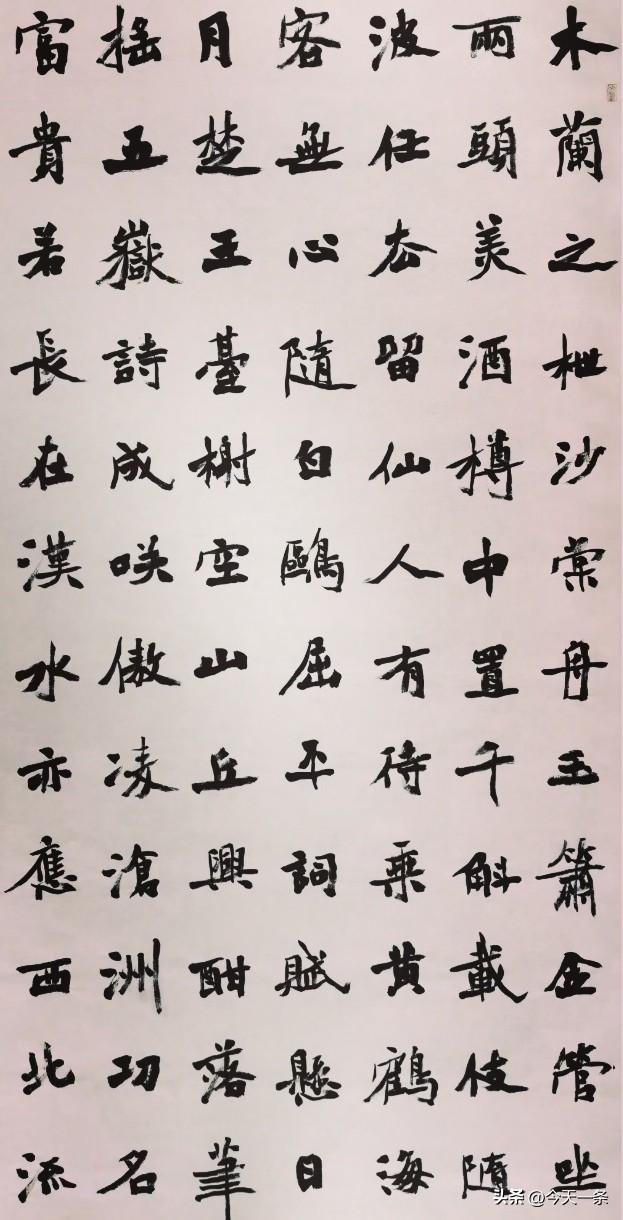 木蘭之枻沙棠舟玉簫金管坐
兩頭美酒樽中置千斛載伎隨
波任厺留仙人有待乘黃鶴海
客無心隨白鷗屈平詞賦懸日
月楚王臺榭空山丘興酣落筆
搖五嶽詩成咲傲凌滄洲功名
富貴若長在漢水亦應西北流
头条 @今天一条